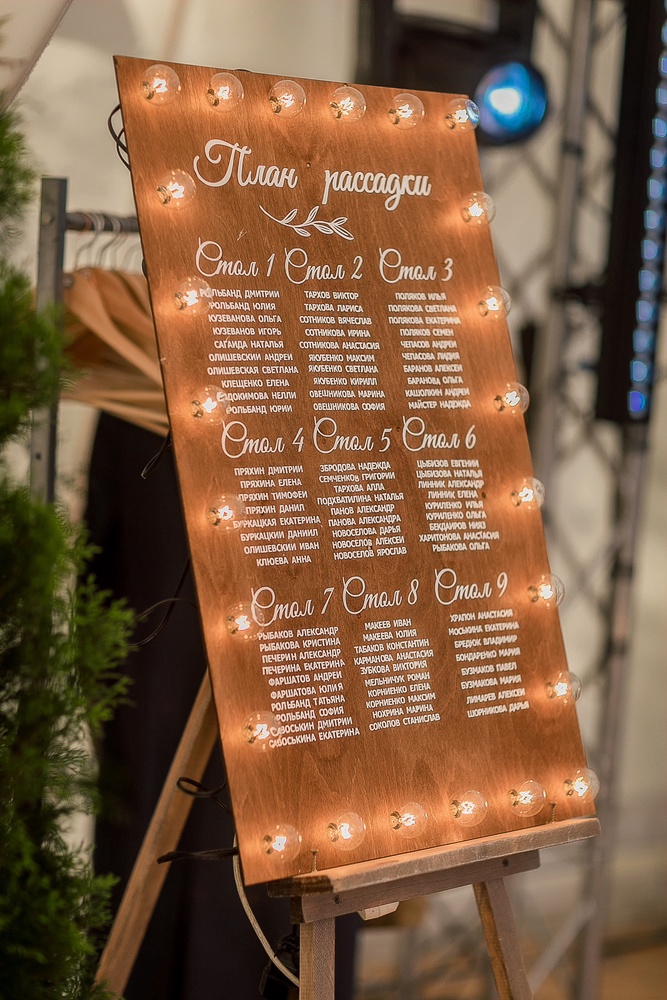 План рассадки
Стол 1
РОЛЬБАНД ДМИТРИЙ
РОЛЬБАНД ЮЛИЯ
КУЗЕВАНОВА ОЛЬГА
КУЗЕВАНОВ ИГОРЬ
НАТАЛЬЯ
ОЛИШЕВСКИЙ АНДРЕЙ
ОЛИШЕВСКАЯ СВЕТЛАНА
КЛЕЩЕНКО ЕЛЕНА
ЕВДОКИМОВА НЕЛЛИ
РОЛЬБАНД ЮРИЙ
Стол 2
ТАРХОВ ВИКТОР
ТАРХОВА ЛАРИСА
СОТНИКОВ ВЯЧЕСЛАВ
СОТНИКОВА ИРИНА
СОТНИКОВА АНАСТАСИЯ
ЯКУБЕНКО МАКСИМ
ЯКУБЕНКО СВЕТЛАНА
ЯКУБЕНКО КИРИЛЛ
ОВЕШНИКОВА МАРИНА
ОВЕШНИКОВА СОФИЯ
Стол 3
ПОЛЯКОВ ИЛЬЯ
ПОЛЯКОВА СВЕТЛАНА
ПОЛЯКОВА ЕКАТЕРИНА
ПОЛЯКОВ СЕМЕН
ЧЕПАСОВ АНДРЕЙ
ЧЕПАСОВА ЛИДИЯ
БАРАНОВ АЛЕКСЕЙ
БАРАНОВА ОЛЬГА
КАШОЛКИН АНДРЕЙ
МАЙСТЕР НАДЕЖДА
Стол 4
ПРЯХИН ДМИТРИЙ
ПРЯХИНА ЕЛЕНА
ПРЯХИН ТИМОФЕЙ
ПРЯХИН ДАНИЛ
БУРКАЦКАЯ ЕКАТЕРИНА
БУРКАЦКИЙ ДАНИИЛ
ОЛИШЕВСКИЙ ИВАН
КЛЮЕВА АННА
Стол 5
ЗБРОДОВА НАДЕЖДА
СЕМЧЕНКОВ ГРИГОРИЙ
ТАРХОВА АЛЛА
ПОДХВАТИЛИНА НАТАЛЬЯ
ПАНОВ АЛЕКСАНДР
ПАНОВА АЛЕКСАНДРА
НОВОСЕЛОВА ДАРЬЯ
НОВОСЕЛОВ АЛЕКСЕЙ
НОВОСЕЛОВ ЯРОСЛАВ
Стол 6
ЦЫБИЗОВ ЕВГЕНИЙ
ЦЫБИЗОВА НАТАЛЬЯ
ЛИННИК АЛЕКСАНДР
ЛИННИК ЕЛЕНА
КУРИЛЕНКО ИЛЬЯ
КУРИЛЕНКО ОЛЬГА
БЕКДАИРОВ НИЯЗ
ХАРИТОНОВА АНАСТАСИЯ
РЫБАКОВА ОЛЬГА
Стол 7
РЫБАКОВ АЛЕКСАНДР
РЫБАКОВА КРИСТИНА
ПЕЧЕРИН АЛЕКСАНДР
ПЕЧЕРИНА ЕКАТЕРИНА
ФАРШАТОВ АНДРЕЙ
ФАРШАТОВА ЮЛИЯ
РОЛЬБАНД ТАТЬЯНА
РОЛЬБАНД СОФИЯ
САВОСЬКИН ДМИТРИЙ
САВОСЬКИНА ЕКАТЕРИНА
Стол 8
МАКЕЕВ ИВАН
МАКЕЕВА ЮЛИЯ
ТАБАКОВ КОНСТАНТИН
КАРМАНОВА АНАСТАСИЯ
ЗУБКОВА ВИКТОРИЯ
МЕЛЬНИЧУК РОМАН
КОРНИЕНКО ЕЛЕНА
КОРНИЕНКО МАКСИМ
НОХРИНА МАРИНА
СОКОЛОВ СТАНИСЛАВ
Стол 9
ХРАПОН АНАСТАСИЯ
МОСЬКИНА ЕКАТЕРИНА
БРЕДЮК ВЛАДИМИР
БОНДАРЕНКО МАРИЯ
БУЗМАКОВ ПАВЕЛ
БУЗМАКОВА МАРИЯ
ЛИМАРЕВ АЛЕКСЕЙ
ШОРНИКОВА ДАРЬЯ